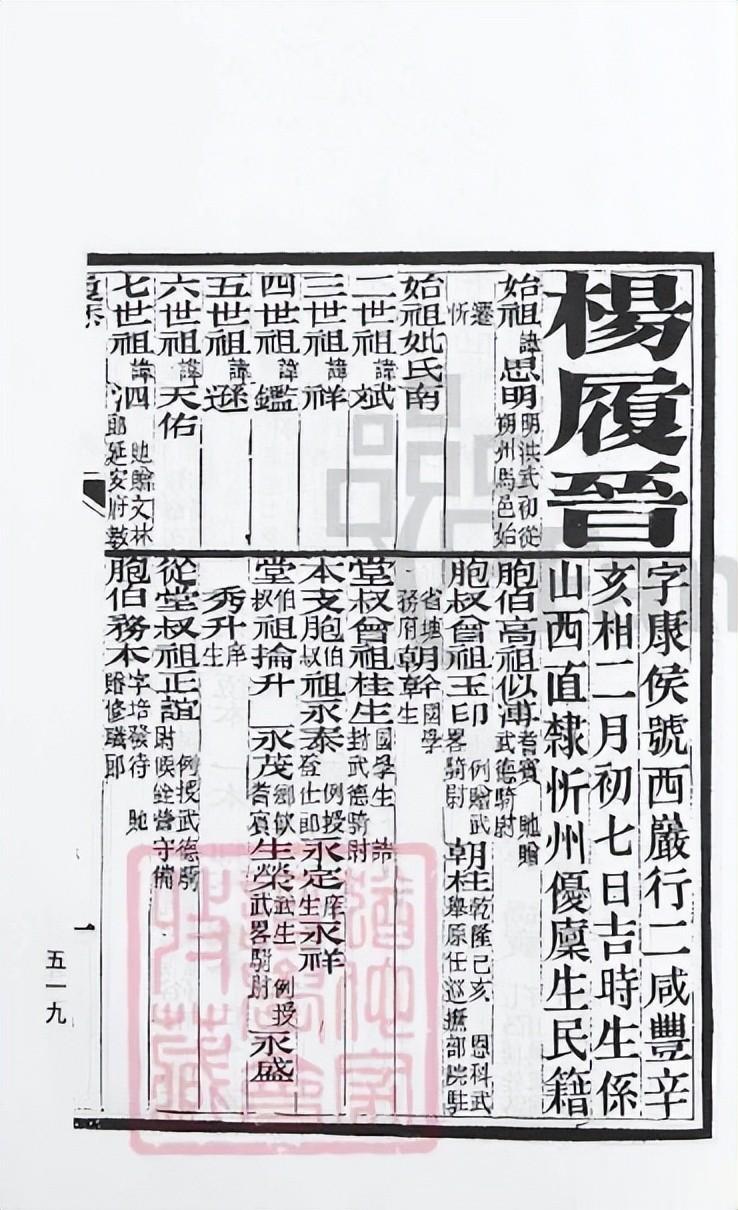 楊履晉
字康侯號西巖行二咸豐辛
亥相二月初七日吉時生係
山西直隸忻州優廩生民籍
始祖諱思明明洪武初從朔州馬邑始
遷忻
始祖妣氏南
二世祖諱斌
三世祖諱祥
四世祖諱鑑
五世祖諱遜
六世祖諱天佑
七世祖諱泗貤贈文林郎延安府教
胞伯高祖似溥耆賓貤贈武德騎尉
胞叔曾祖玉印例贈武畧騎尉朝柱乾隆己亥恩科武舉原任巡撫部院駐
省塘務府朝幹國學生
堂叔曾祖桂生國學生誥封武德騎尉
本支胞伯叔祖永泰例授登仕郎永定庠生永祥
堂伯叔祖掄升永茂鄉飲耆賓生榮武生例授武畧騎尉永盛
秀升庠生
從堂叔祖正誼例授武德騎尉候銓營守備
胞伯務本字培發待贈貤修職郎
五一九